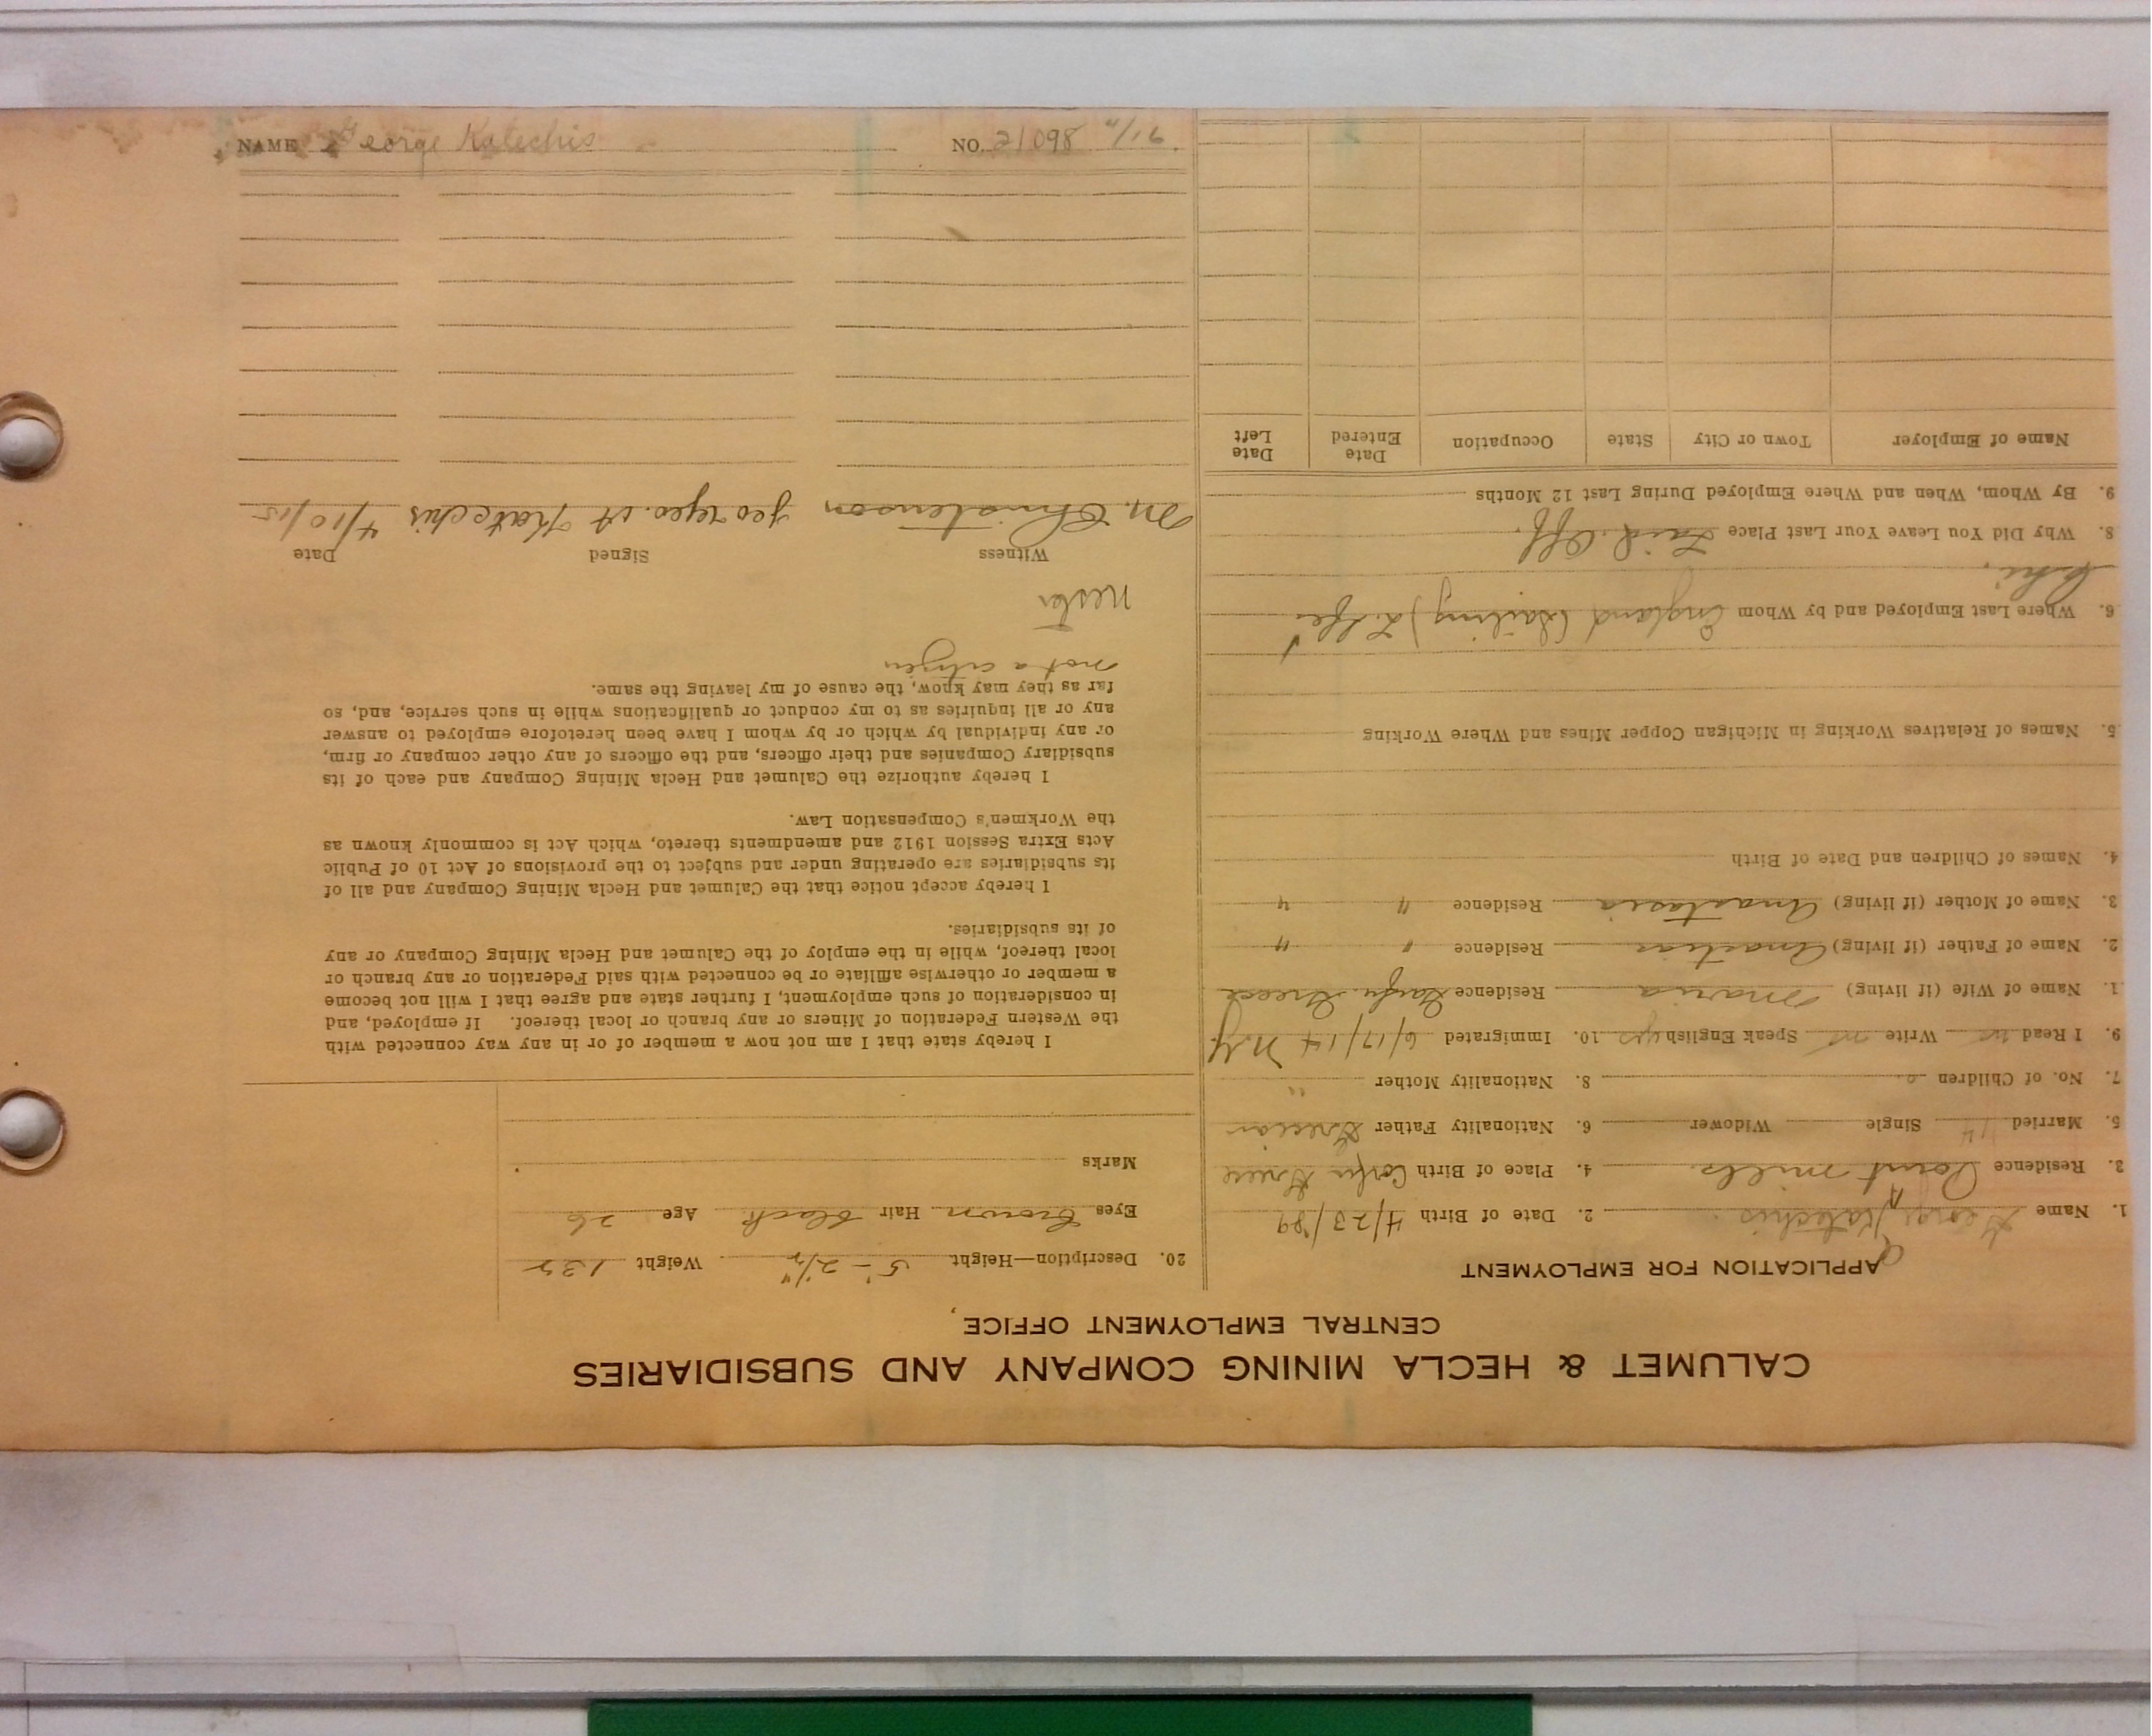 NAME George Katechis NO. 21098
CALUMET & HECLA MINING COMPANY AND SUBSIDIARIES
CENTRAL EMPLOYMENT OFFICE,
APPLICATION FOR EMPLOYMENT
1. Name George A Katechis 2. Date of Birth 4/23/89
3. Residence Point Mills 4. Place of Birth Corfu Greece
5. Married Single Widower 6. Nationality Father Grecian
7. No. of Children 8. Nationality Mother "
9. I Read no Write no Speak English yes 10. Immigrated 6/17/14 N.Y.
1. Name of Wife (if living) Maria Residence Corfu Greece
2. Name of Father (if living) Residence " "
3. Name of Mother (if living) Anastasia Residence " "
4. Names of Children and Date of Birth
5. Names of Relatives Working in Michigan Copper Mines and Where Working
6. Where Last Employed and by Whom England
8. Why Did You Leave Your Last Place Laid Off.
9. By Whom, When and Where Employed During Last 12 Months
Name of Employer Town or City State Occupation Date Entered Date Left
20. Description—Height 5'-2 1/2" Weight 135
Eyes Brown Hair black Age 26
Marks
I hereby state that I am not now a member of or in any way connected with
the Western Federation of Miners or any branch or local thereof. If employed, and
in consideration of such employment, I further state and agree that I will not become
a member or otherwise affiliate or be connected with said Federation or any branch or
local thereof, while in the employ of the Calumet and Hecla Mining Company or any
of its subsidiaries.
I hereby accept notice that the Calumet and Hecla Mining Company and all of
its subsidiaries are operating under and subject to the provisions of Act 10 of Public
Acts Extra Session 1912 and amendments thereto, which Act is commonly known as
the Workmen's Compensation Law.
I hereby authorize the Calumet and Hecla Mining Company and each of its
subsidiary Companies and their officers, and the officers of any other company or firm,
or any individual by which or by whom I have been heretofore employed to answer
any or all inquiries as to my conduct or qualifications while in such service, and, so
far as they may know, the cause of my leaving the same.
not a citizen
Nester
Witness Signed Date
M. Christenson George A Katechis 4/10/15